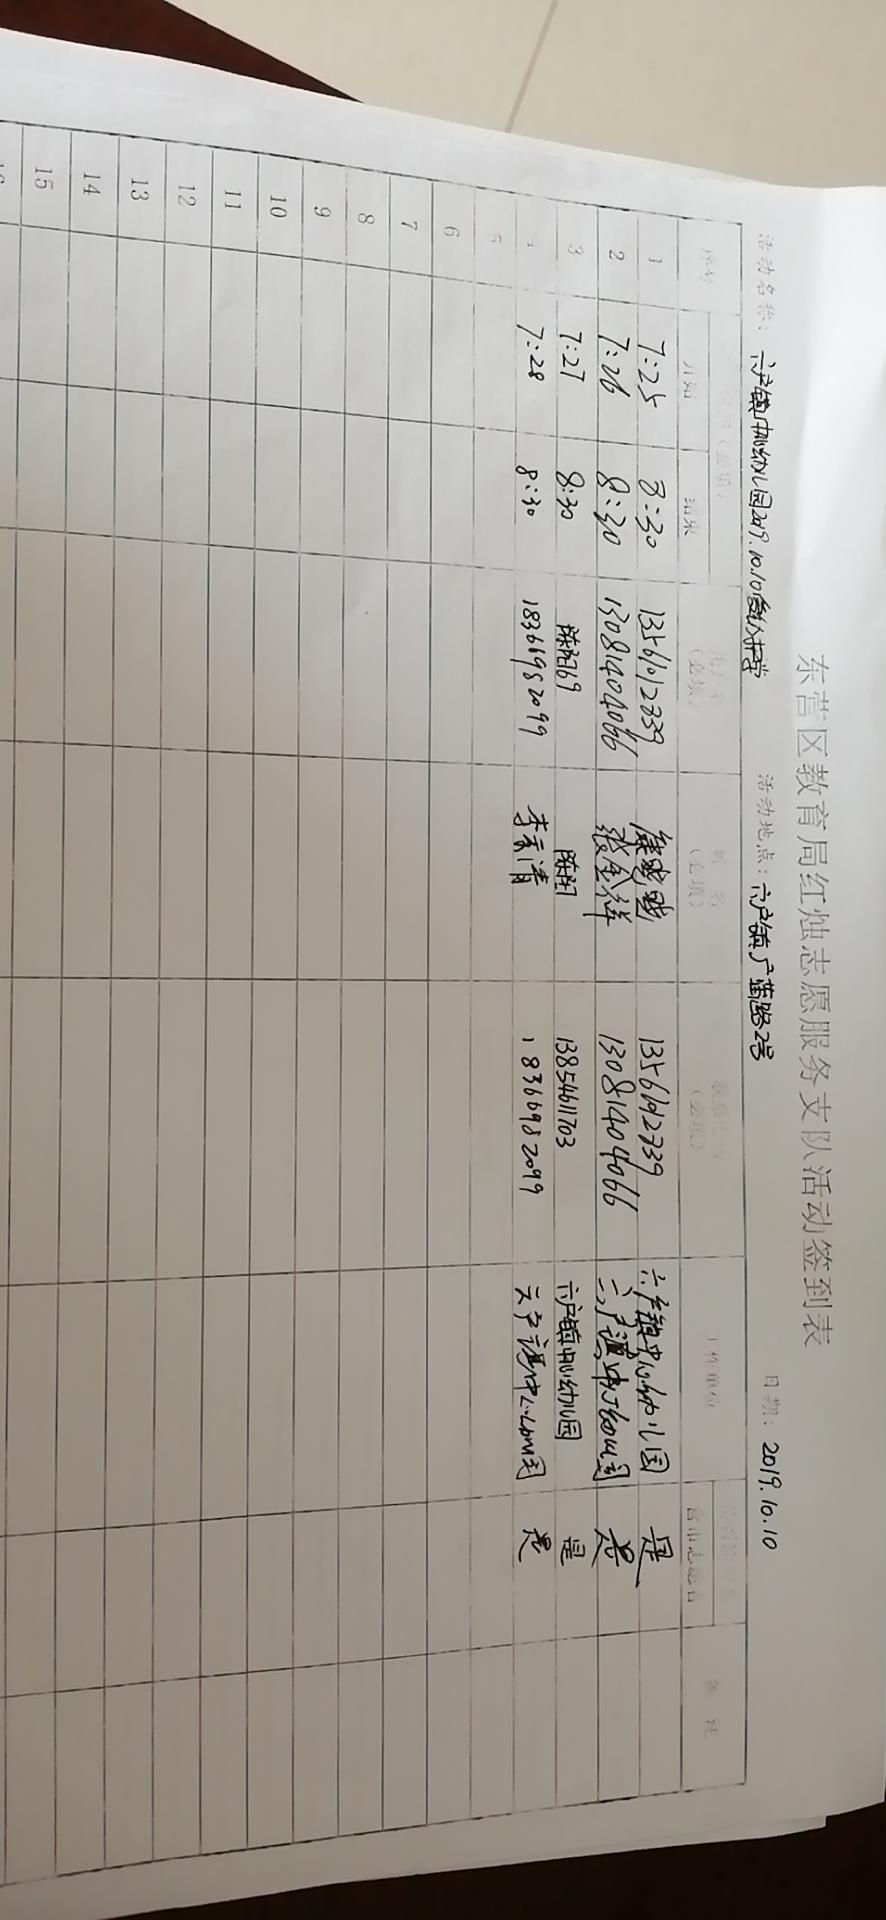 东营区教育局红烛志愿服务支队活动签到表
活动名称：六户镇中心幼儿园2019.10.10 活动地点：六户镇广蒲路2号 日期：2019.10.10
序号 （必填） （必填） （必填） （必填） 工作单位 备注
开始 结束
1 7:25 8:30 13561012739 13561012739 六户镇中心幼儿园 是
2 7:26 8:30 13081404066 张金祥 13081404066 六户镇中心幼儿园 是
3 7:27 8:30 陈闰769 陈闰 13854611703 六户镇中心幼儿园 是
4 7:28 8:30 18366982099 李云清 18366982099 六户镇中心幼儿园 是
5
6
7
8
9
10
11
12
13
14
15
16